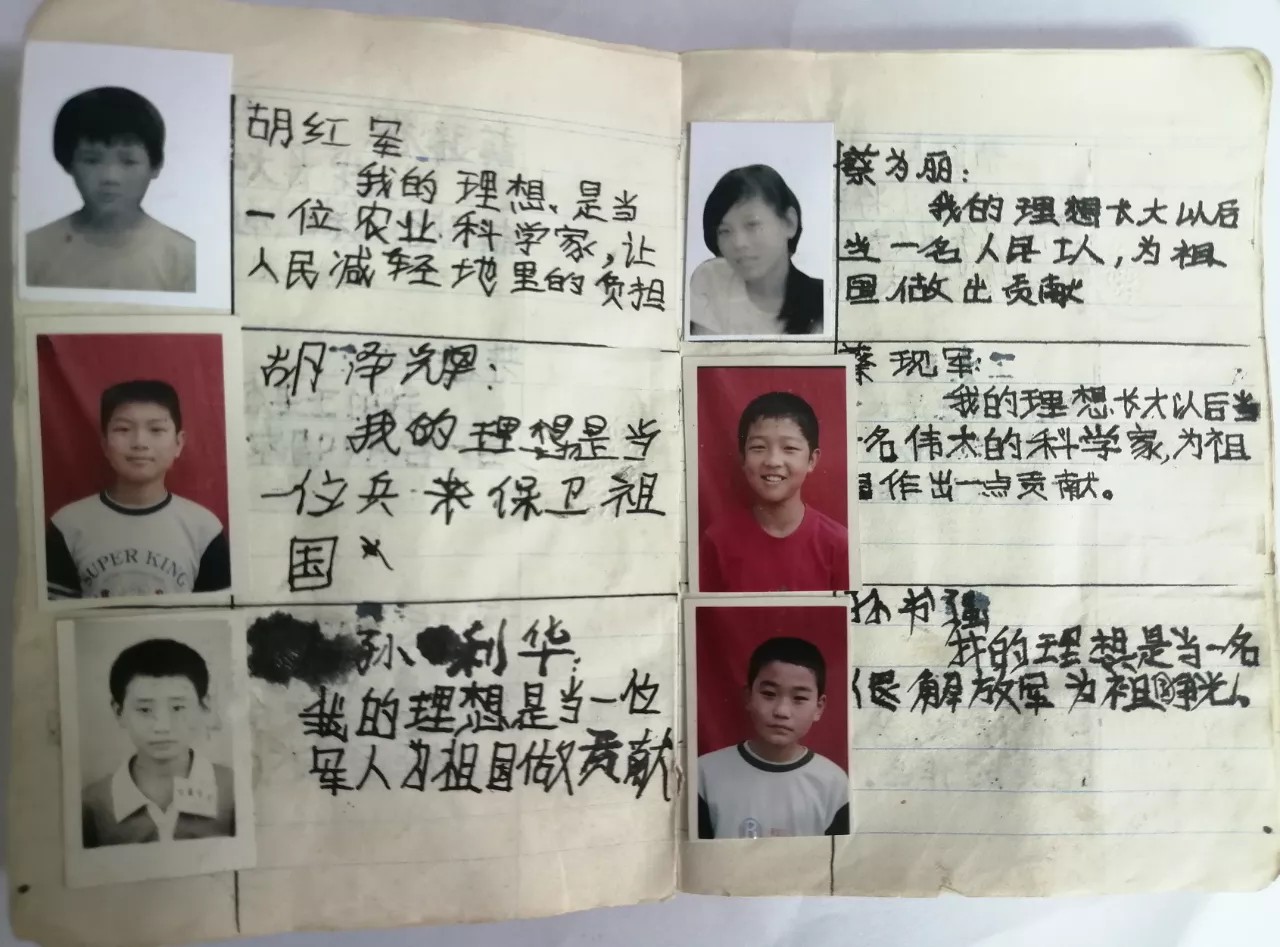 胡红军
我的理想、是当
一位农业科学家,让
人民减轻地里的负担
胡泽光:
我的理想是当
一位兵来保卫祖
国
SUPER KING
孙利华:
我的理想是当一位
军人为祖国做贡献
蔡为丽:
我的理想长大以后
当一名人民工人,为祖
国做出贡献
蔡现军:
我的理想长大以后当
名伟大的科学家,为祖
作出一点贡献。
孙书强
我的理想是当一名
解放军为祖国光